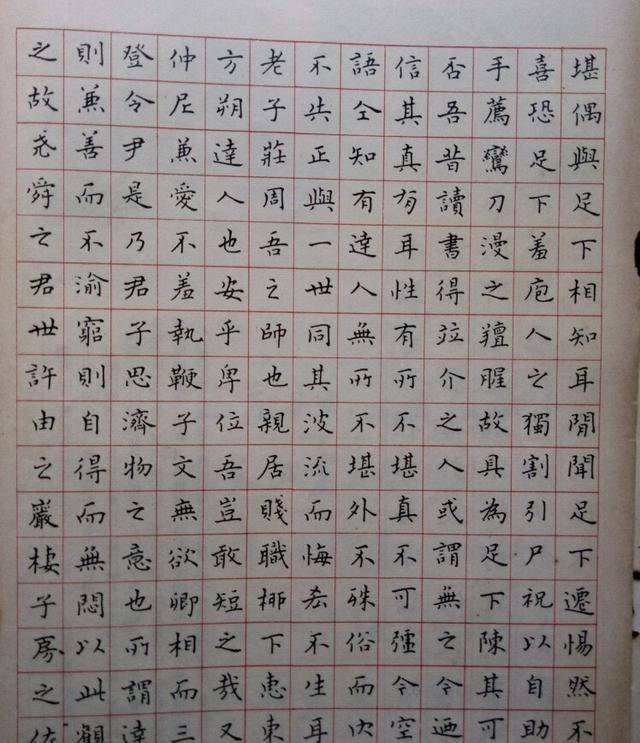 堪偶與足下相知耳閒聞足下遷惕然不
喜恐足下羞庖人之獨割引尸祝以自助
手薦鸞刀漫之羶腥故具為足下陳其可
否吾昔讀書得竝介之人或謂無之今迺
信其真有耳性有所不堪真不可彊今空
語仝知有達人無所不堪外不殊俗而内
不失正與一世同其波流而悔吝不生耳
老子莊周吾之師也親居賤職柳下惠東
方朔達人也安乎卑位吾豈敢短之哉又
仲尼兼愛不羞執鞭子文無欲卿相而三
登令尹是乃君子思濟物之意也所謂達
則兼善而不渝窮則自得而無悶以此觀
之故堯舜之君世許由之巖棲子房之佐